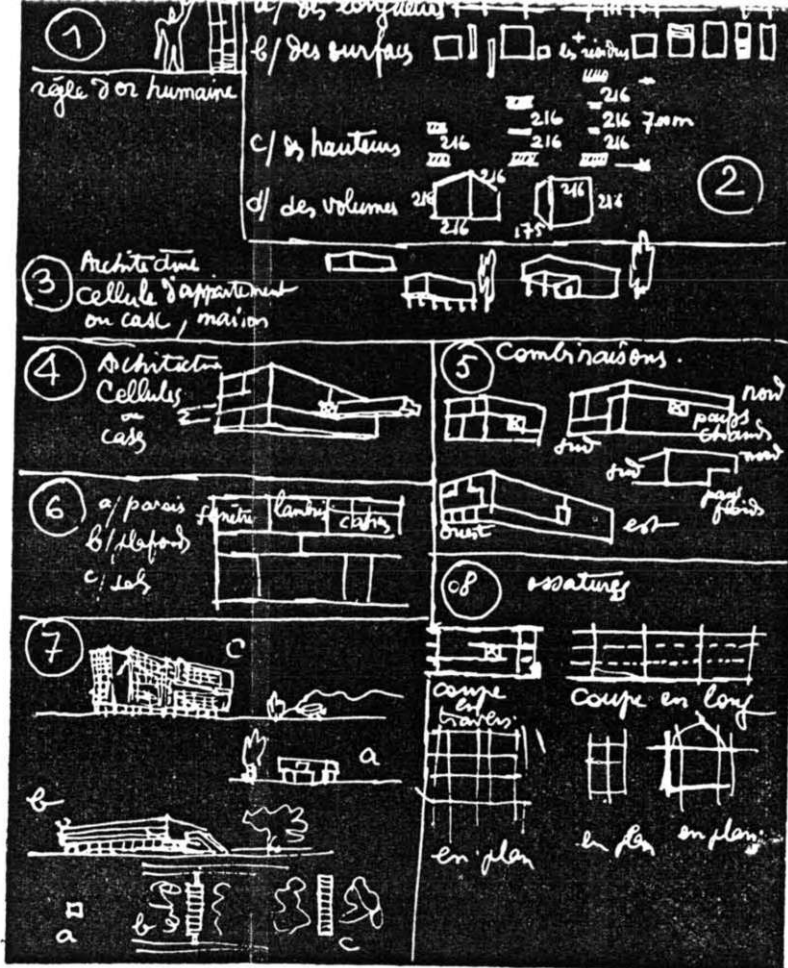 1
règle d'or humaine
a/ des longueurs
b/ des surfaces
les résidus
216 216 216 700m
216 216
c/ des hauteurs 216 216 216
216 216 216
d/ des volumes 216
216 175
2
3 Architecture
cellule d'appartement
ou case, maison
4 Architecture
Cellules
ou
cases
5 combinaisons.
nord
pays
chauds
sud
sud nord
pays
froids
ouest est
6 a/ parois
b/ plafonds
c/ sols
fenêtre lambris
7
c
a
b
a b c
08 ossatures
coupe
en
travers.
coupe en long
en plan en plan en plan.